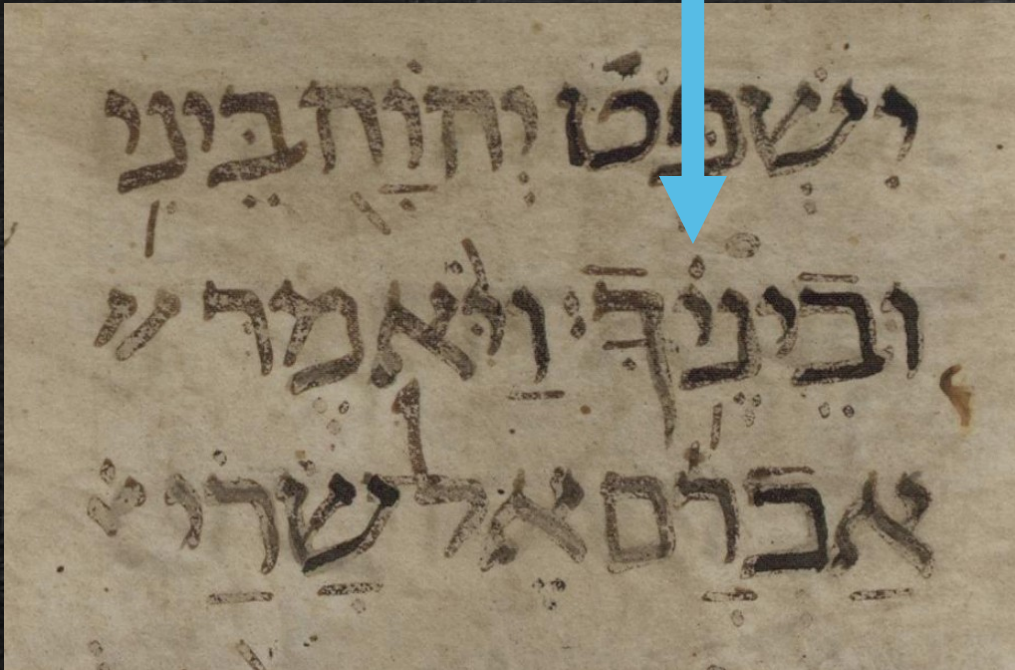 יִשְׁפֹּט יְהוָֹה בֵּינִי
ובֵֿינֶיׄךָֿ׃ וַיֹּאמֶר
אַבְֿרָם אֶל שָׂרַי